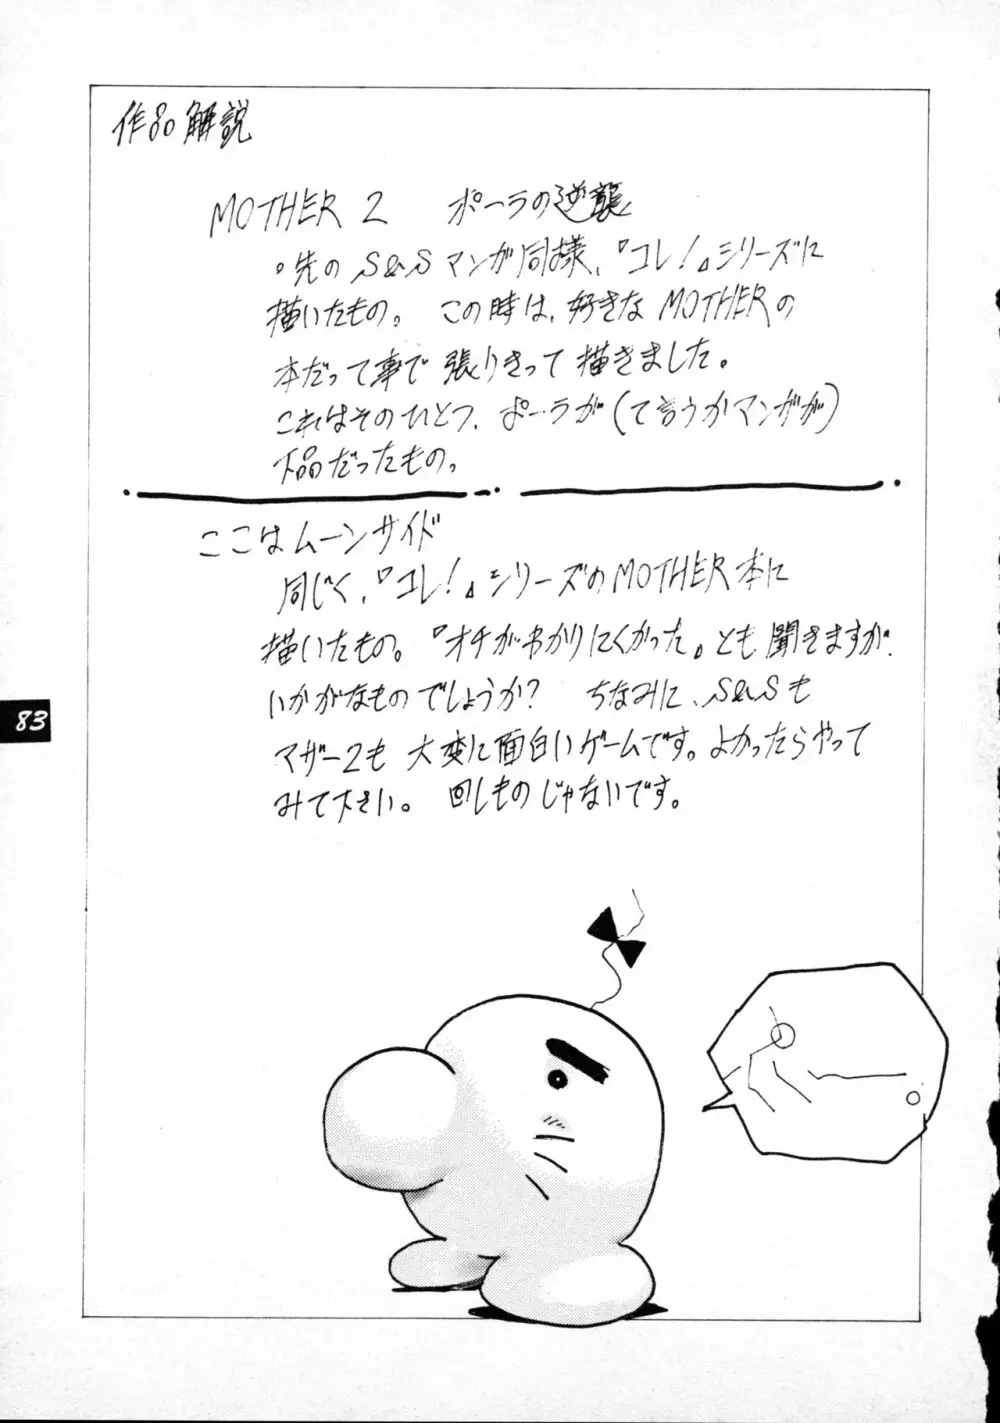 作品解説
MOTHER 2 ポーラの逆襲
。先のS&Sマンガ同様、『コレ!』シリーズに
描いたもの。この時は、好きなMOTHERの
本だって事で張りきって描きました。
これはそのひとつ、ポーラが(て言うかマンガが)
下品だったもの。
ここはムーンサイド
同じく、『コレ!』シリーズのMOTHER本に
描いたもの。『オチがわかりにくかった』とも聞きますが、
いかがなものでしょうか? ちなみに、S&Sも
マザー2も大変に面白いゲームです。よかったらやって
みて下さい。回しものじゃないです。
83